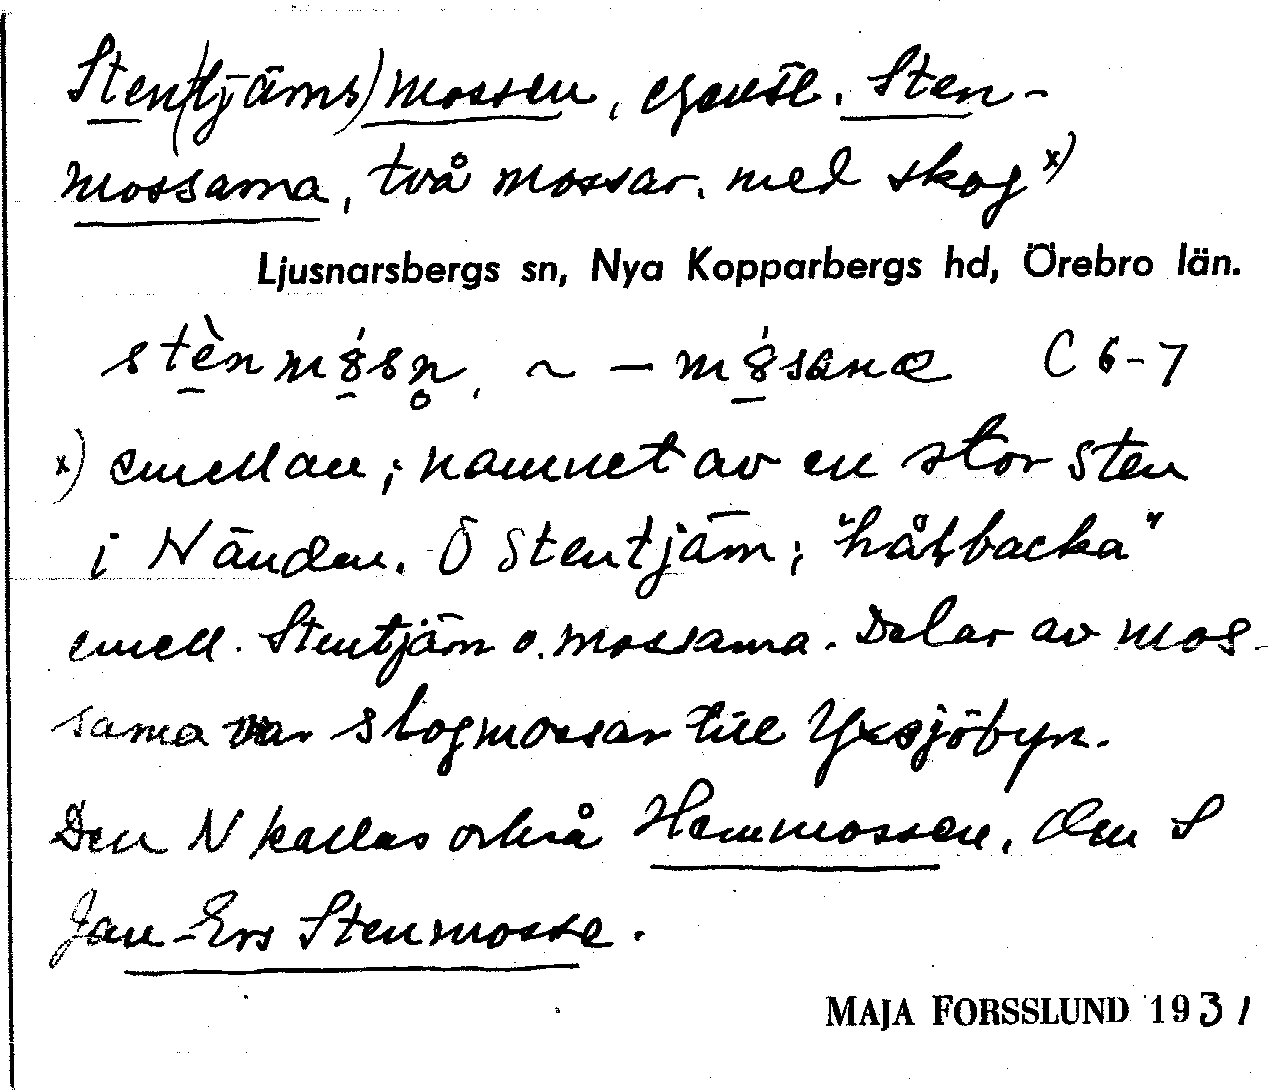 Sten(tjärns)mossen, egentl. Sten-
mossarna, två mossar, med skog x)
Ljusnarsbergs sn, Nya Kopparbergs hd, Örebro län.
C 6-7
x) emellan; namnet av en stor sten
i N änden. Ö Stentjärn; "håfbacka"
emell. Stentjärn o. mossarna. Delar av mos-
sarna var slogmossar till Yxsjöbyn.
Den N kallas också Hemmossen, den S
Jan-Ers Stenmosse.
MAJA FORSSLUND 1931